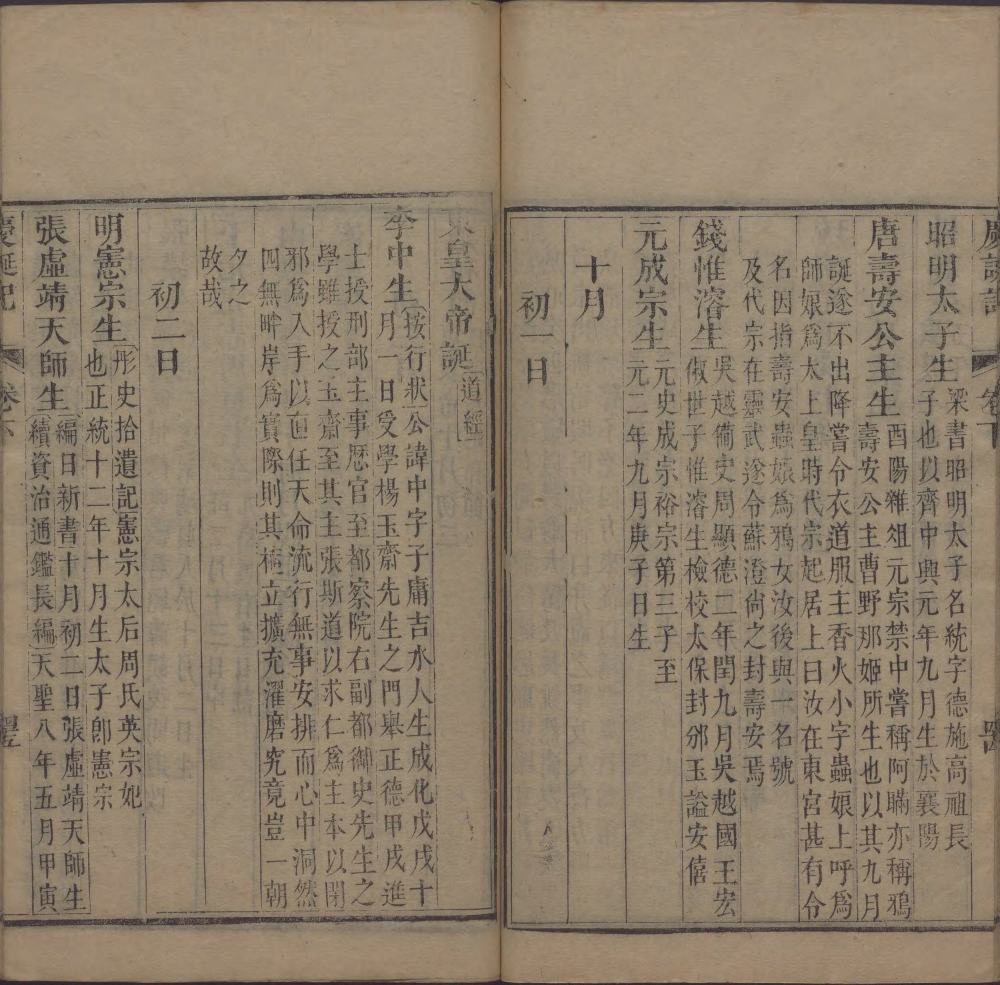 慶誕記 卷下
昭明太子生 梁書昭明太子名統字德施高祖長
子也以齊中興元年九月生於襄陽
唐壽安公主生 酉陽雜俎元宗禁中嘗稱阿瞞亦稱鴉
壽安公主曹野那姬所生也以其九月
誕遂不出降嘗令衣道服主香火小字蟲娘上呼爲
師娘爲太上皇時代宗起居上曰汝在東宮甚有令
名因指壽安蟲娘爲鴉女汝後與一名號
及代宗在靈武遂令蘇澄尙之封壽安焉
錢惟濬生 吳越備史周顯德二年閏九月吳越國王宏
俶世子惟濬生檢校太保封邠王謚安僖
元成宗生 元史成宗裕宗第三子至
元二年九月庚子日生
十月
初一日
東皇大帝誕 道經
李中生 按行狀公諱中字子庸吉水人生成化戊戌十
月一日受學楊玉齋先生之門舉正德甲戌進
士授刑部主事歷官至都察院右副都御史先生之
學雖授之玉齋至其主張斯道以求仁爲主本以閑
邪爲入手以直任天命流行無事安排而心中洞然
四無畔岸爲實際則其植立擴充濯磨究竟豈一朝
夕之
故哉
初二日
明憲宗生 彤史拾遺記憲宗太后周氏英宗妃
也正統十二年十月生太子卽憲宗
張虛靖天師生 編日新書十月初二日張虛靖天師生
續資治通鑑長編天聖八年五月甲寅
慶誕記 卷下